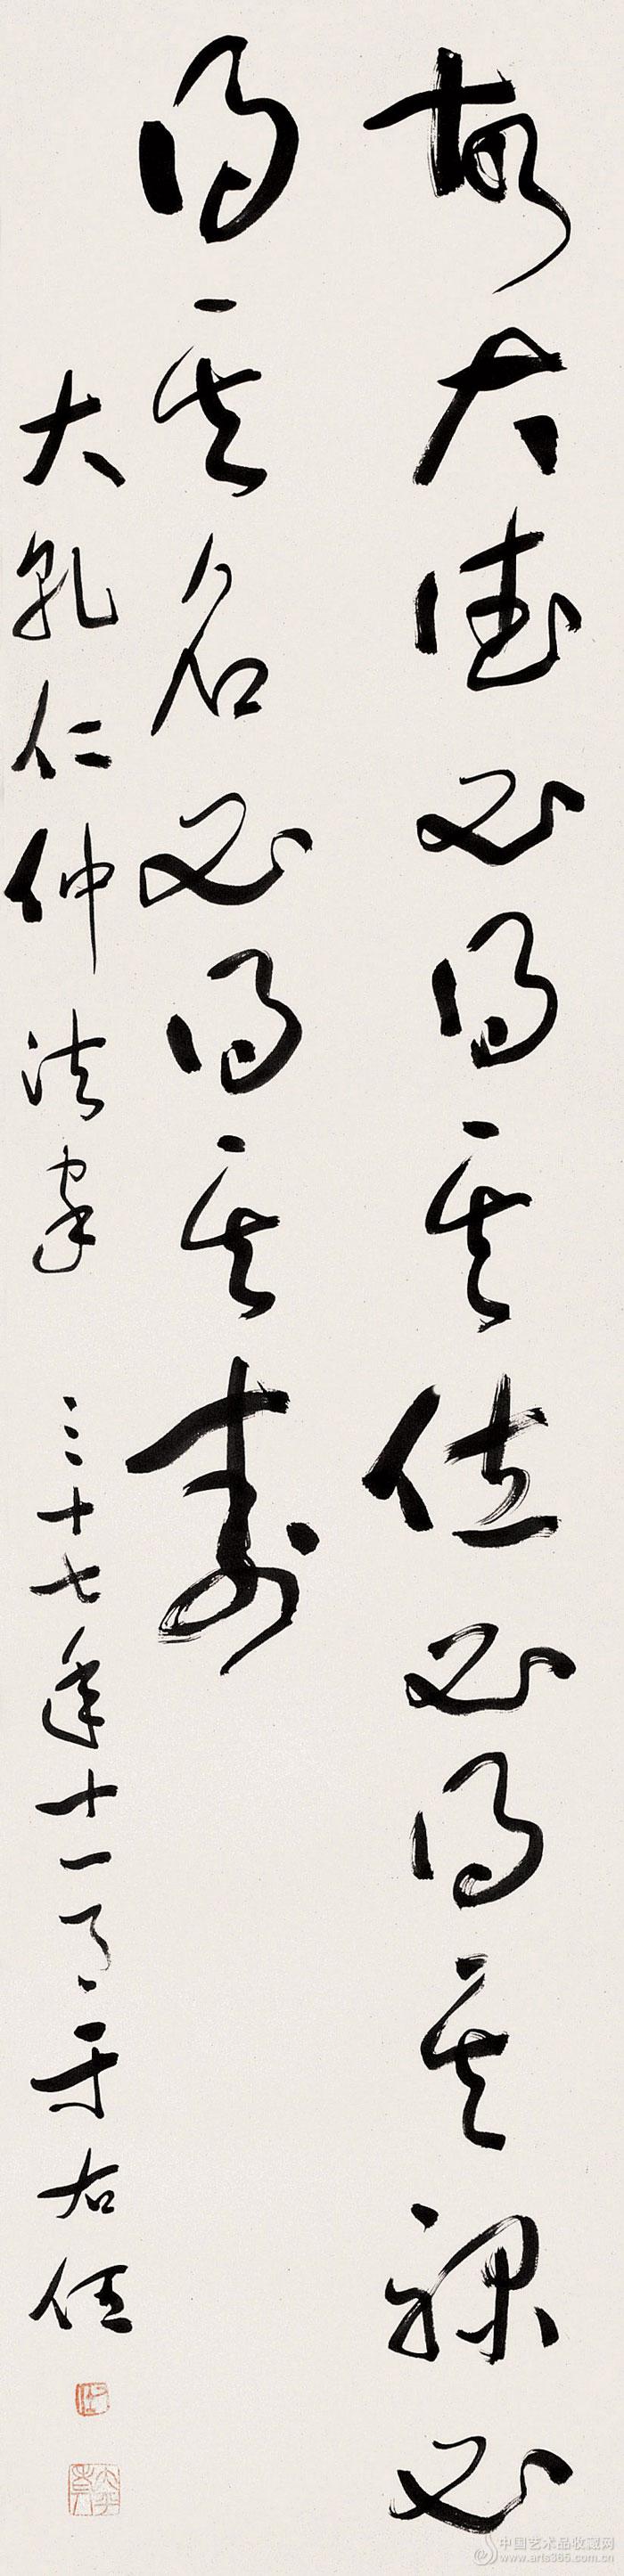 故大德必得其位必得其祿必
得其名必得其壽
大乾仁仲法家 三十七年十一月 于右任
中国艺术品收藏网
www.arts365.com.cn